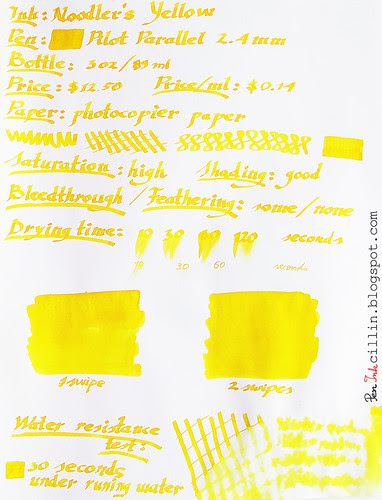 Ink: Noodler's Yellow
Pen: Pilot Parallel 2.4mm
Bottle: 3 oz/89 ml
Price: $12.50 Price/ml: $0.14
Paper: photocopier paper
Saturation: high Shading: good
Bleedthrough / Feathering: some/none
Drying time: 10 30 60 120 seconds
10 30 60 seconds
1 swipe
2 swipes
Water resistance
test:
30 seconds
under runing water
Pen Ink cillin.blogspot.com